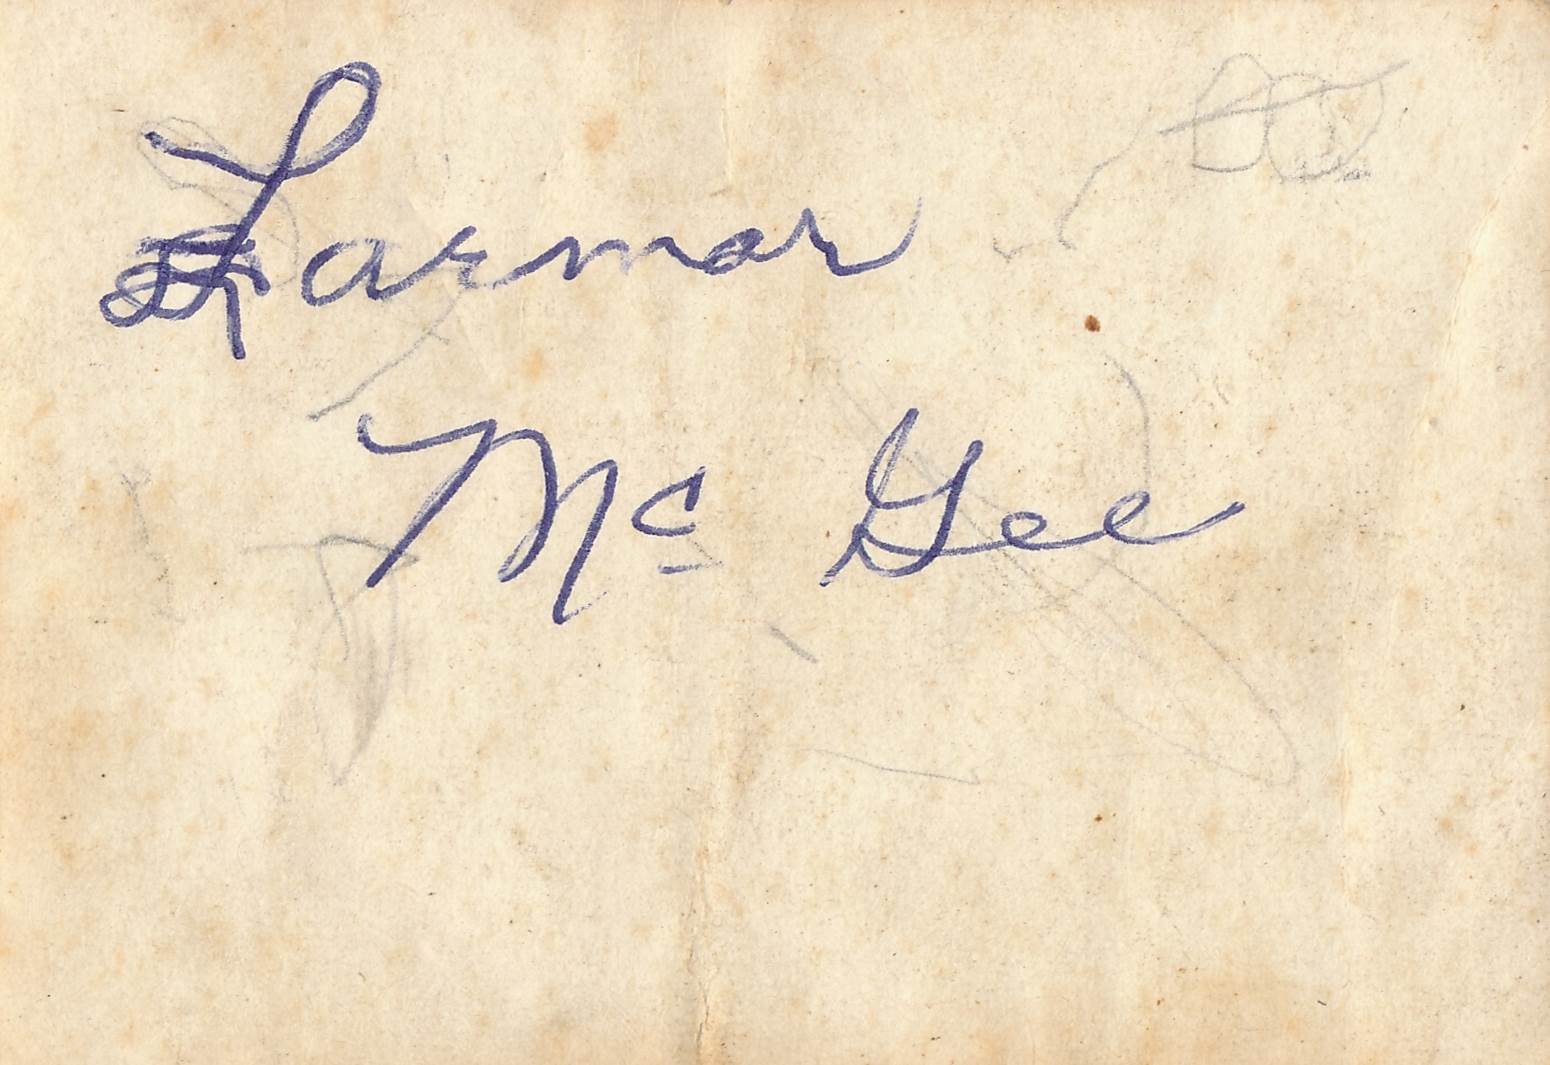 Larmar
Mc Gee